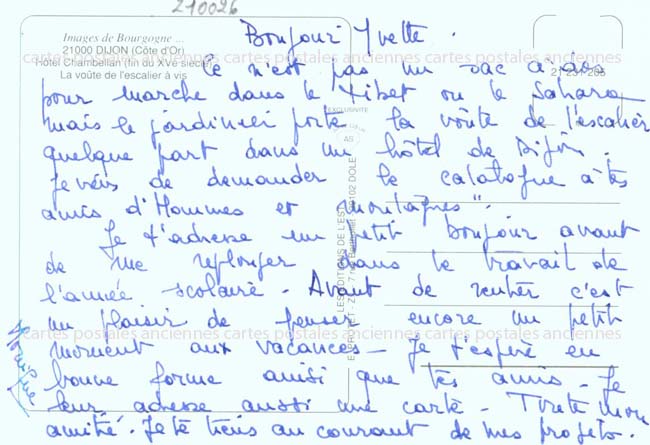 210026
Images de Bourgogne ...
21000 DIJON (Côte d'Or)
Hôtel Chambellan (fin du XVe siècle)
La voûte de l'escalier à vis
21 231 205
EXCLUSIVITÉ
LES ÉDITIONS DE L'EST
cartes postales anciennes cartes postales anciennes cartes postales anciennes
Bonjour Yvette.
Ce n'est pas un sac à dos
pour marche dans le Tibet ou le Sahara
mais le jardinier porte la voûte de l'escalier
quelque part dans un hôtel de Dijon.
Je viens de demander le catalogue à tes
amis d'Hommes et montagnes".
Je t'adresse un petit bonjour avant
de me replonger dans le travail de
l'année scolaire. Avant de rentrer c'est
un plaisir de penser encore un petit
moment aux vacances - Je t'espère en
bonne forme ainsi que tes amis. Je
leur adresse aussi une carte - Toute mon
amitié. Je te tiens au courant de mes projets.
Monique
cartes postales anciennes cartes postales anciennes cartes postales anciennes